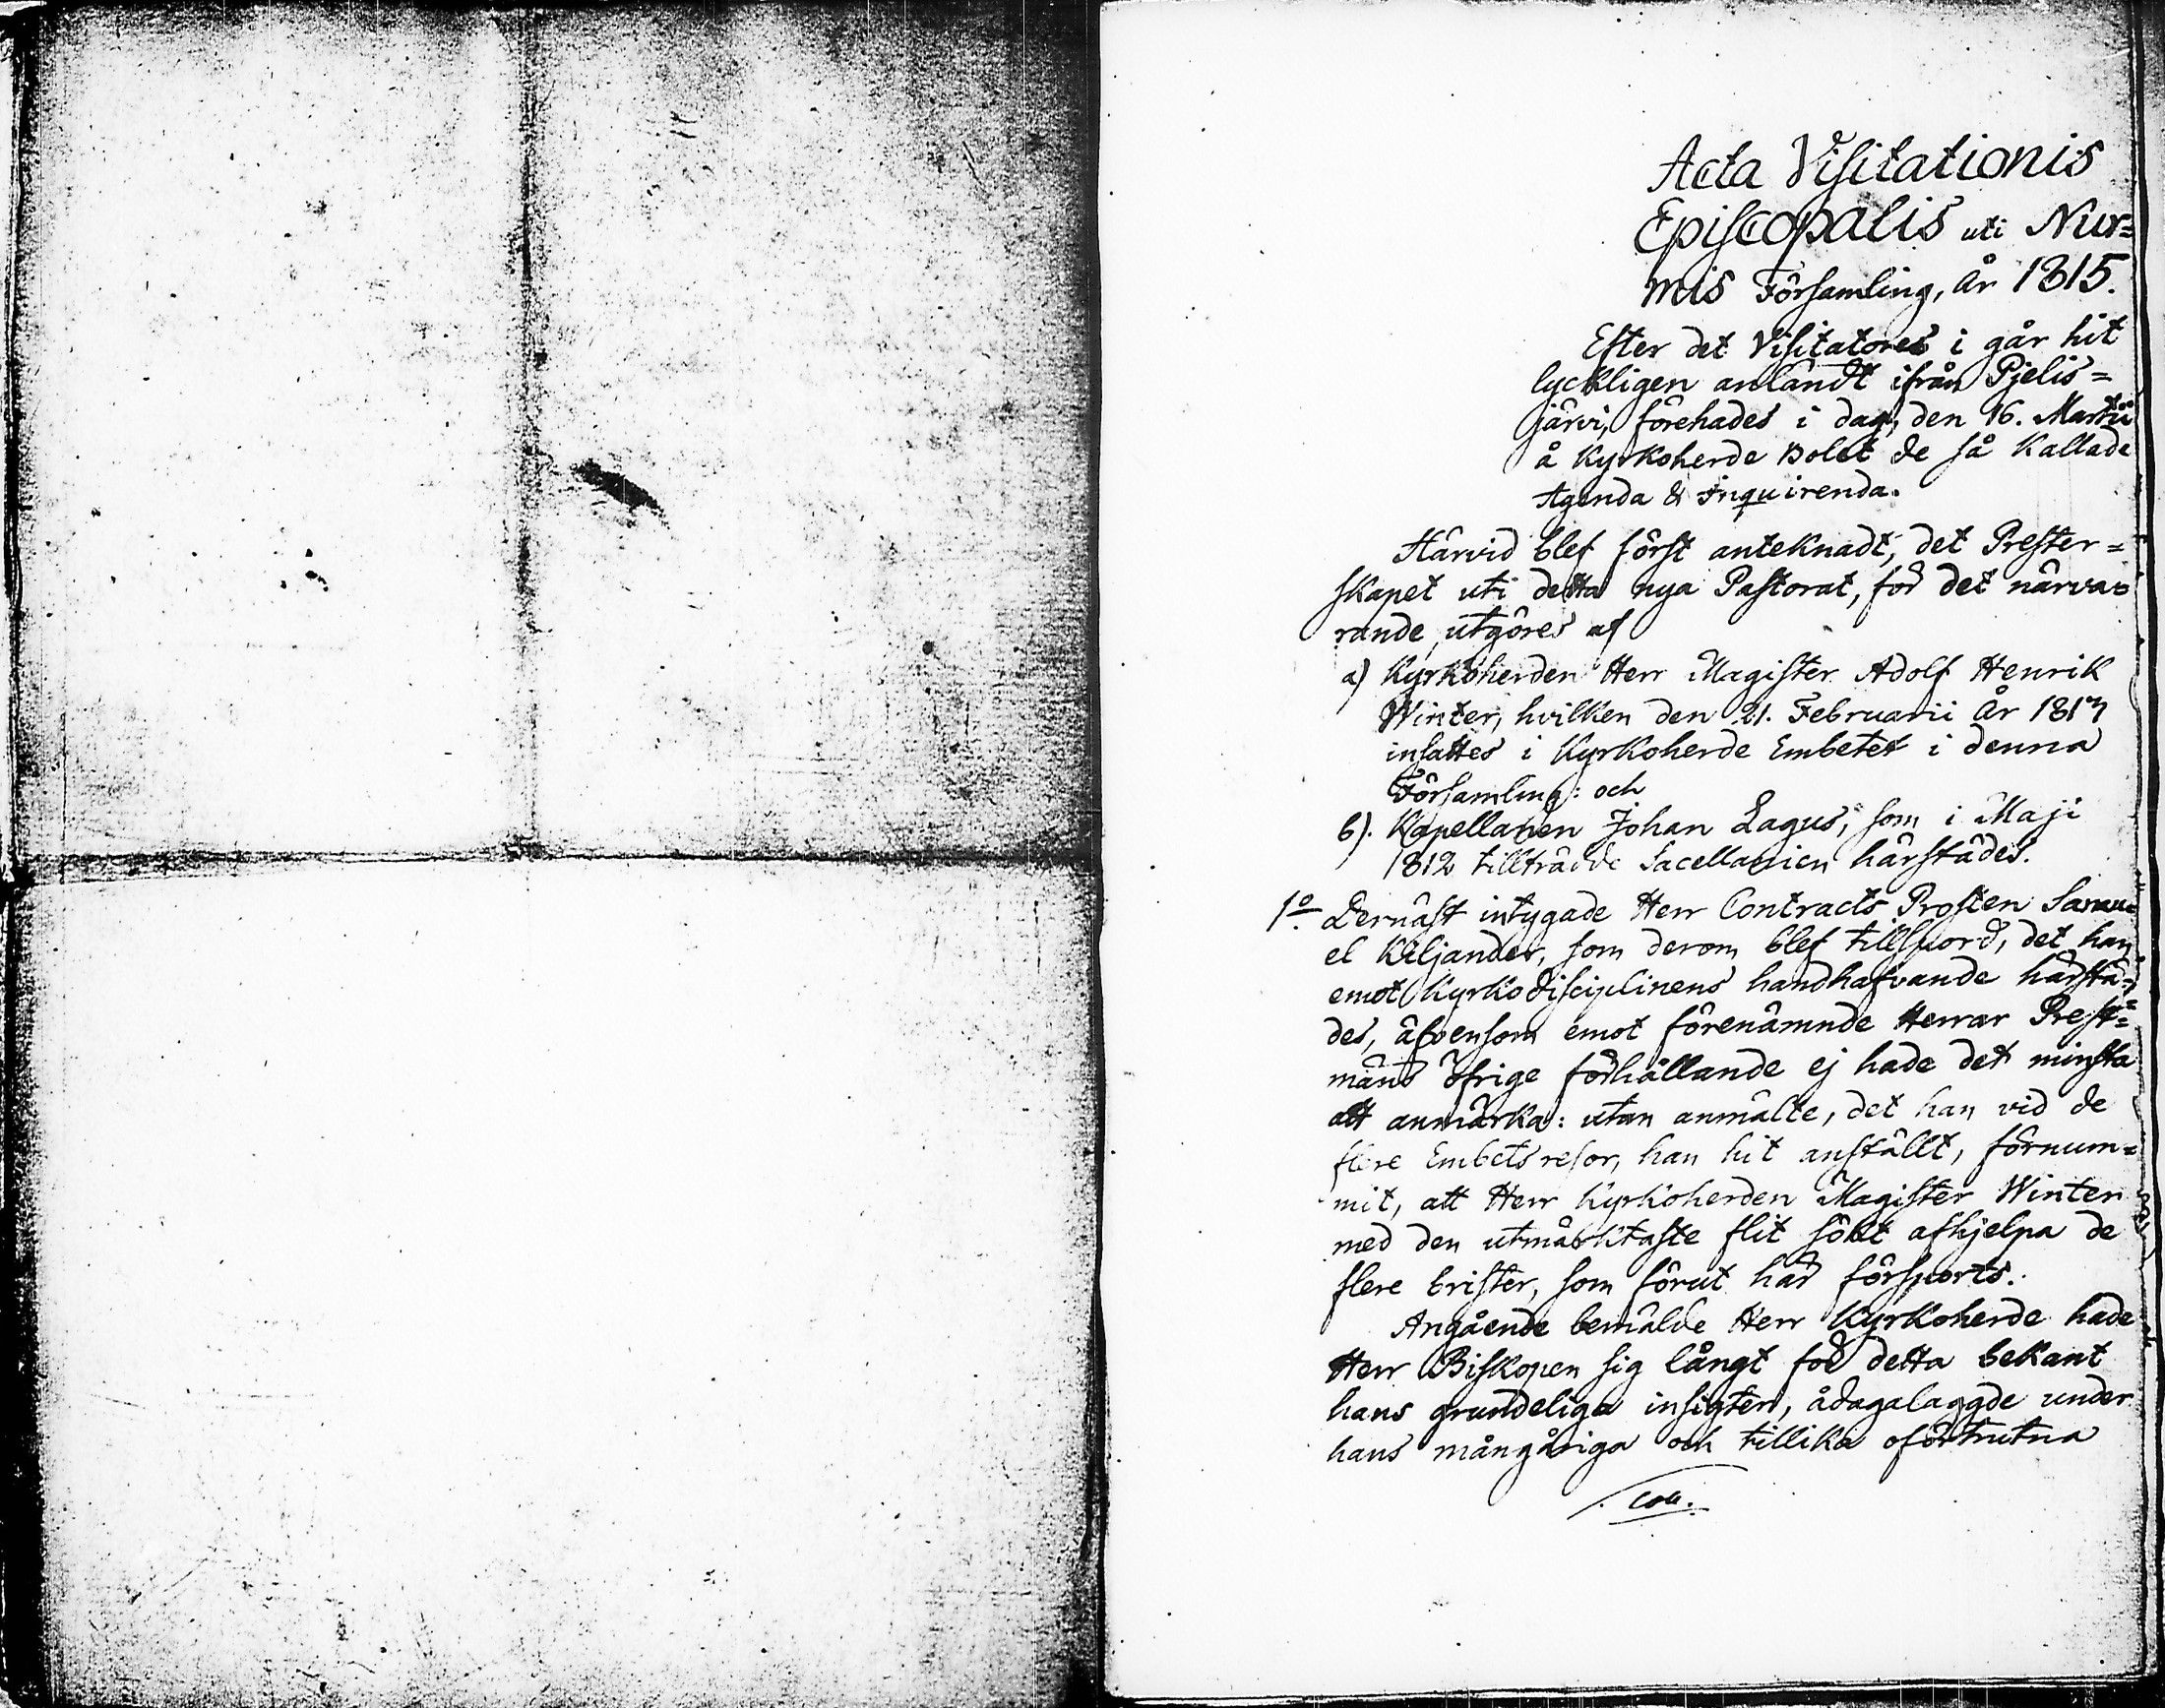 Acta Visitationis
Episcopalis uti Nur=
mis Församling, År 1815.
Efter det Visitatores i går hit
lyckligen anländt ifrån Pjelis=
järvi, förehades i dag, den 16. Martii
å Kyrkoherde Bolet de så kallade
Agenda & Inquirenda.
Härvid blef först anteknadt, det Prester=
skapet uti detta nya Pastorat, för det närva=
rande, utgöres af
a) Kyrkoherden Herr Magister Adolf Henrik
Winter, hvilken den 21. Februarii År 181
insattes i Kyrkoherde Embetet i denna
Församling: och
b). Kapellanen Johan Lagus, som i Maji
1812 tillträdde Sacellanien härstädes.
1o. Dernäst intygade Herr Contracts Prosten Samu=
el Kiljander, som derom blef tillspord, det han
emot Kyrko disciplinens handhafvande härstä=
des, äfvensom emot förenämnde Herrar Prest=
mäns öfrige förhållande ej hade det minsta
att anmärka: utan anmälte, det han vid de
flere Embets resor, han hit anställt, förnum=
mit, att Herr Kyrkoherden Magister Winter
med den utmärktaste flit sökt afhjelpa de
flere brister, som förut här försports.
Angående bemälde Herr Kyrkoherde hade
Herr Biskopen sig långt för detta bekant
hans grundeliga insigter, ådagalaggde under
hans mångåriga och tillika oförtrutna